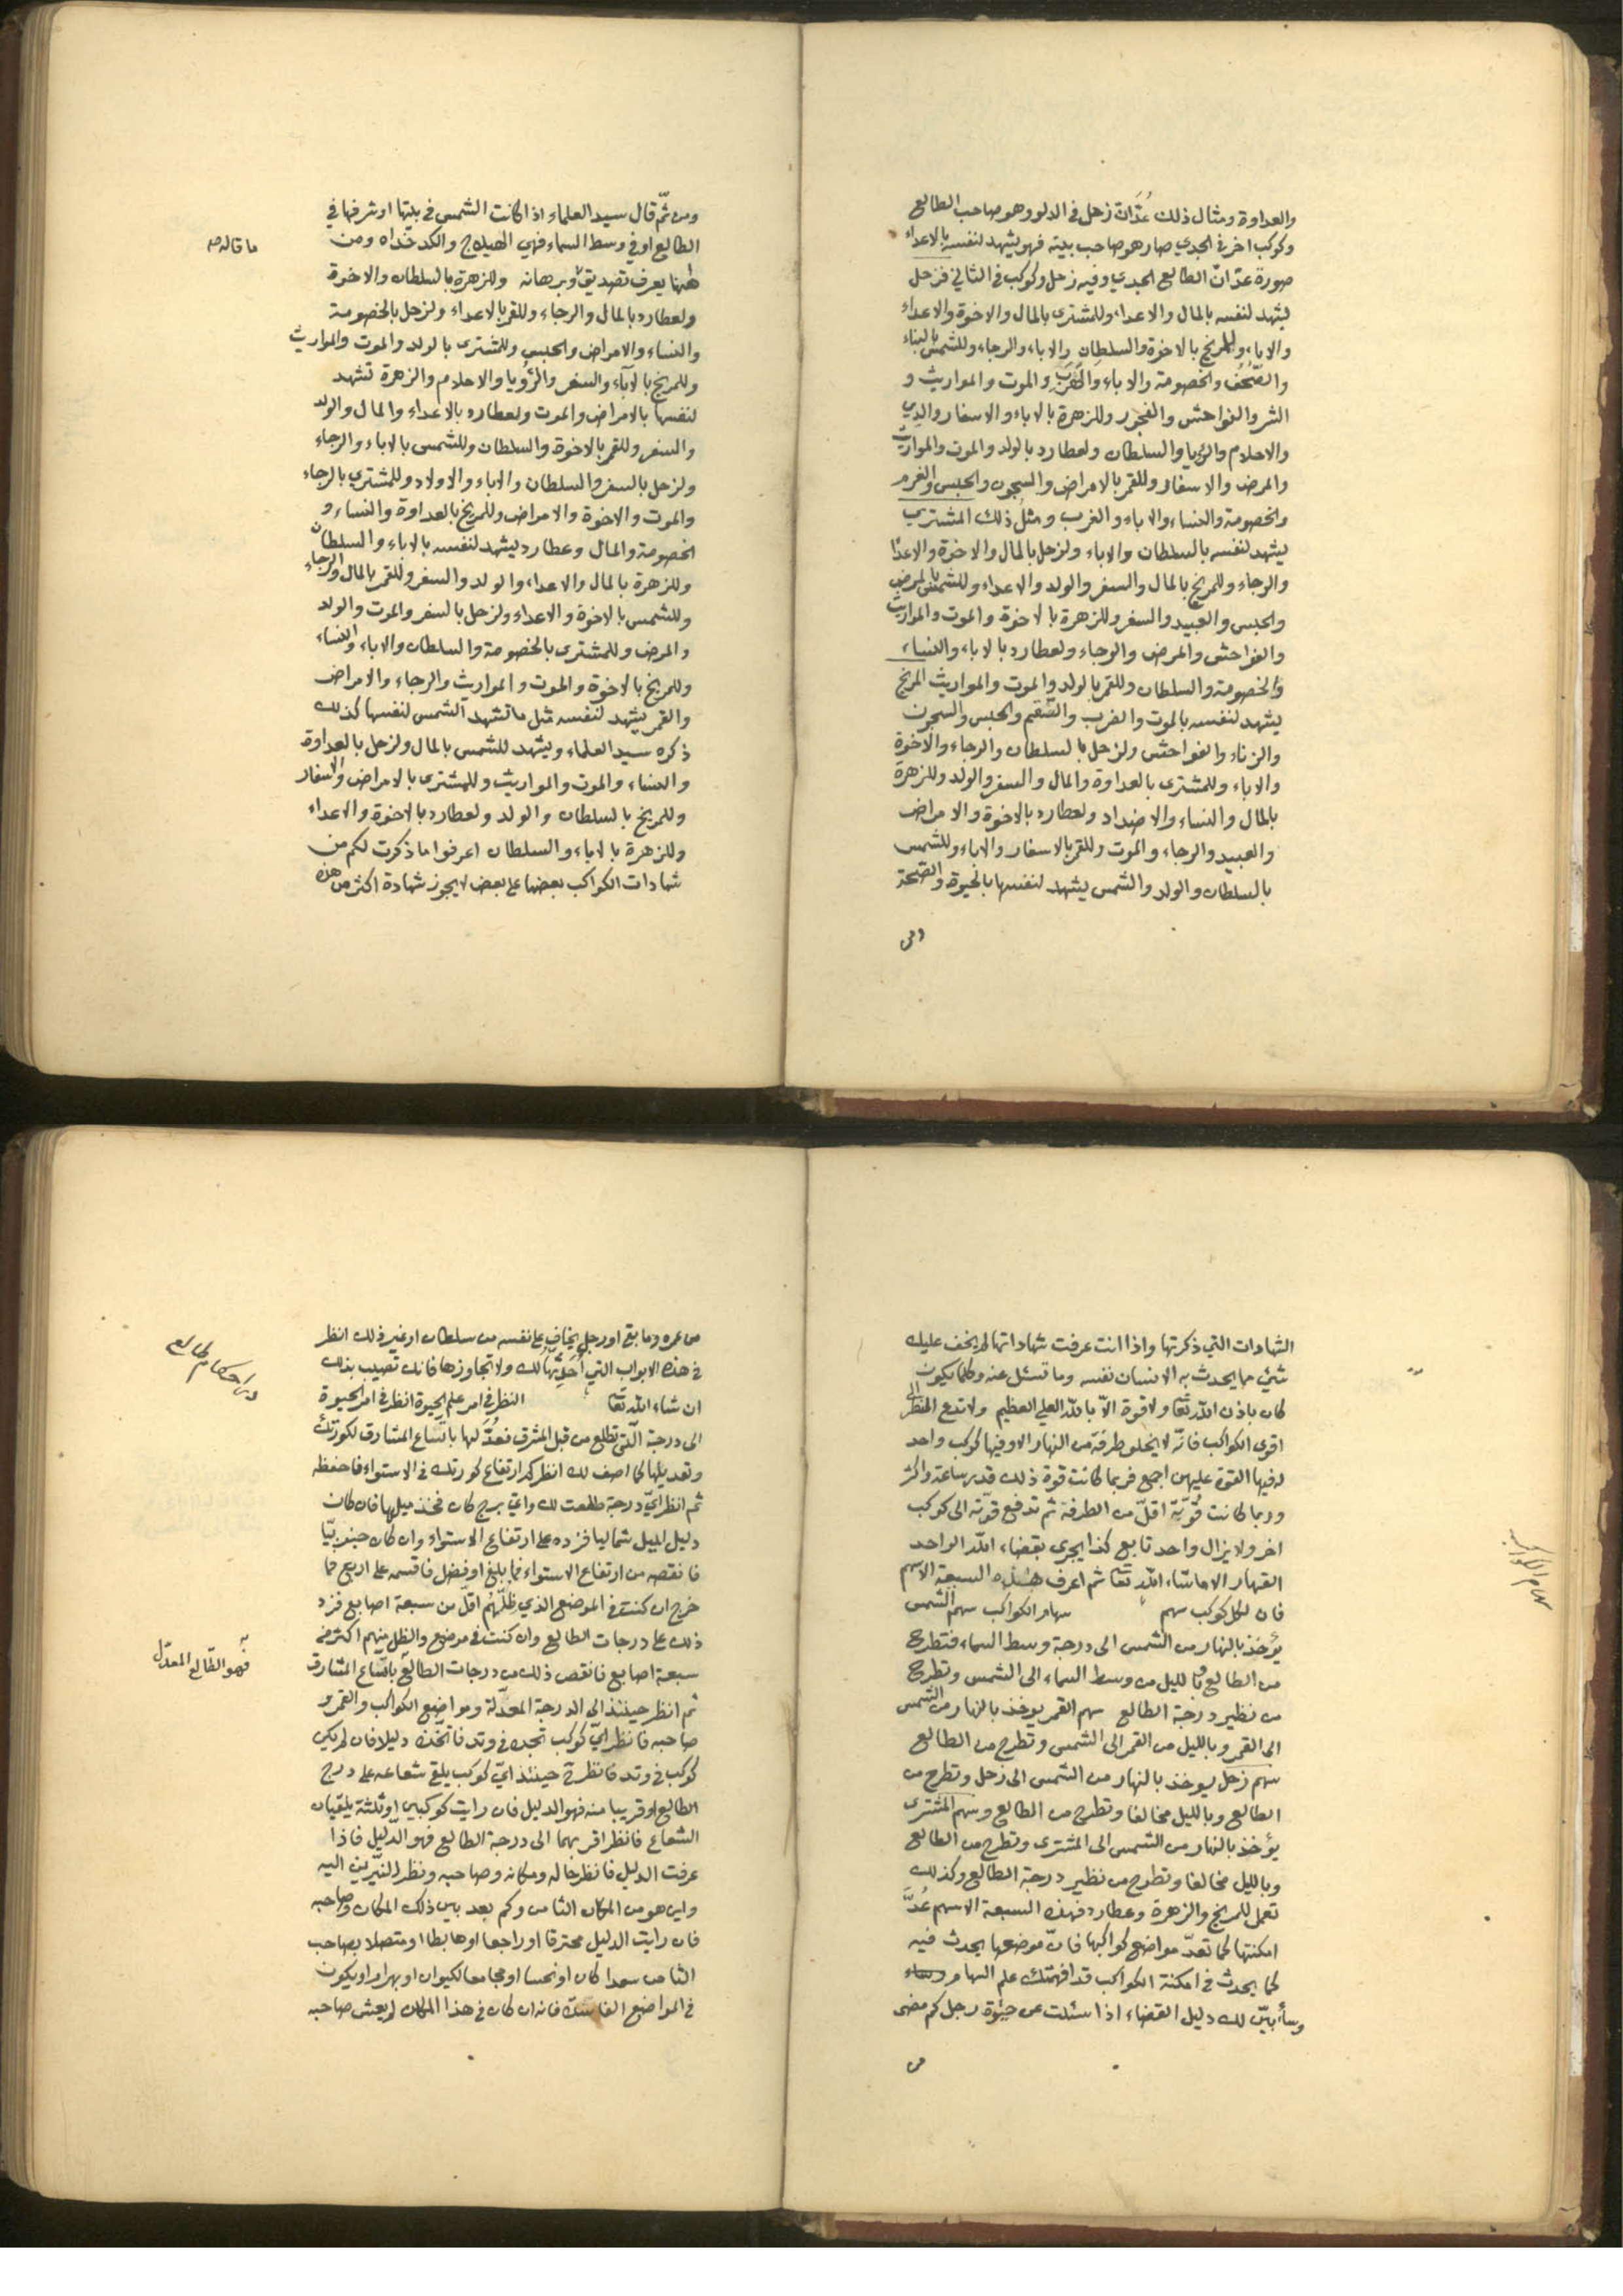 والعداوة ومثال ذلك عُدَّ انّ زحل في الدلو وهو صاحب الطالع
وكوكب اخر في الجدي صار هو صاحب بيته فهو يشهد لنفسه بالاعداء
صورة عدّ انّ الطالع الجدي وفيه زحل وكوكب في الثاني فزحل
يشهد لنفسه بالمال والاعداء وللمشترى بالمال والاخوة والاعداء
والاباء وللمريخ بالاخوة والسلطان والاباء والرجاء وللشمس بالبناء
والصُّحُف والخصومة والاباء والموت والمواريث و
الشر والفواحش والفجور وللزهرة بالاباء والاسفار والدين
والاحلام والرؤيا والسلطان ولعطارد بالولد والموت والمواريث
والمرض والاسفار وللقمر بالامراض والسجون والحبس والغرم
والخصومة والنساء والاباء والغرب ومثل ذلك المشتري
يشهد لنفسه بالسلطان والاباء ولزحل بالمال والاخوة والاعدا
والرجاء وللمريخ بالمال والسفر والولد والاعداء وللشمس بالمرض
والحبس والعبيد والسفر وللزهرة بالاخوة والموت والمواريث
والفواحش والمرض والرجاء ولعطارد بالاباء والنساء
والخصومة والسلطان وللقمر بالولد والموت والمواريث المريخ
يشهد لنفسه بالموت والضرب والسقم والحبس والسجون
والزناء والفواحش ولزحل بالسلطان والرجاء والاخوة
والاباء وللمشترى بالعداوة والمال والسفر والولد وللزهرة
بالمال والنساء والاضداد ولعطارد بالاخوة والامراض
والعبيد والرجاء والموت وللقمر بالاسفار والاباء وللشمس
بالسلطان والولد والشمس يشهد لنفسها بالحيوة والصحة
ومن
ومن ثمّ قال سيد العلماء اذا كانت الشمس في بيتها او شرفها في
الطالع او في وسط السماء فهي الهيلاج والكدخداه ومن
ههنا يعرف تصديق وبرهانه وللزهرة بالسلطان والاخوة
ما قاله
ولعطارد بالمال والرجاء وللقمر بالاعداء ولزحل بالخصومة
والنساء والامراض والحبس وللمشترى بالولد والموت والمواريث
وللمريخ بالآباء والسفر والرؤيا والاحلام والزهرة تشهد
لنفسها بالامراض والموت ولعطارد بالاعداء والمال والولد
والسفر وللقمر بالاخوة والسلطان وللشمس بالاباء والرجاء
ولزحل بالسفر والسلطان والاباء والاولاد وللمشتري بالرجاء
والموت والاخوة والامراض وللمريخ بالعداوة والنساء و
الخصومة والمال وعطارد يشهد لنفسه بالاباء والسلطان
وللزهرة بالمال والاعداء والولد والسفر وللقمر بالمال والرجاء
وللشمس بالاخوة والاعداء ولزحل بالسفر والموت والولد
والمرض وللمشترى بالخصومة والسلطان والاباء والنساء
وللمريخ بالاخوة والموت والمواريث والرجاء والامراض
والقمر يشهد لنفسه مثل ما تشهد الشمس لنفسها كذلك
ذكره سيد العلماء ويشهد للشمس بالمال ولزحل بالعداوة
والنساء والموت والمواريث وللمشترى بالامراض والاسفار
وللمريخ بالسلطان والولد ولعطارد بالاخوة والاعداء
وللزهرة بالاباء والسلطان اعرفوا ما ذكرت لكم من
شهادات الكواكب بعضها على بعض لا يجوز شهادة اكثر من هذه
الشهادات التي ذكرتها واذا انت عرفت شهاداتها لم يخف عليك
شيئ مما يحدث به الانسان نفسه وما تسئل عنه وكلما يكون
كان باذن الله تعا ولا قوة الّا بالله العلي العظيم ولا تدع النظر الى
اقوى الكواكب فانّه لا يخلو طرفة من النهار الا وفيها كوكب واحد
له فيها القوة عليهن اجمع فربما كانت قوة ذلك قدر ساعة واكثر
وربما كانت قوّته اقلّ من الطرفة ثم تدفع قوّته الى كوكب
اخر ولا يزال واحد تابع كذا يجري بقضاء الله الواحد
القهار الا ما شاء الله تعا ثم اعرف هذه السبعة الاسهم
فان لكل كوكب سهم سهام الكواكب سهم الشمس
سهام الكواكب
يؤخذ بالنهار من الشمس الى درجة وسط السماء فتطرح
من الطالع وبالليل من وسط السماء الى الشمس وتطرح
من نظير درجة الطالع سهم القمر يوخذ بالنهار من الشمس
الى القمر وبالليل من القمر الى الشمس وتطرح من الطالع
سهم زحل يوخذ بالنهار من الشمس الى زحل وتطرح من
الطالع وبالليل مخالفا وتطرح من الطالع وسهم المشترى
يؤخذ بالنهار من الشمس الى المشترى وتطرح من الطالع
وبالليل مخالفا وتطرح من نظير درجة الطالع وكذلك
تعمل للمريخ والزهرة وعطارد فهذه السبعة الاسهم عُدَّ
امكنتها كما تعدّ مواضع كواكبها فانّ موضعها يحدث فيه
كما يحدث في امكنة الكواكب قد افهمتك علم السهام
وسأبيّن لك دليل القضاء اذا سئلت عن حيوة رجل كم مضى
من
من عمره وما بقى او رجل يخاف على نفسه من سلطان او غير ذلك انظر
في هذه الابواب التي لك ولا تجاوزها فانك تصيب بذلك
ان شاء الله تعا النظر في امر علم الحيوة انظر في امر الحيوة
الى درجة الّتي تطلع من قبل المشرق فعُدَّ لها باتساع المشارق لكورتك
وتعديلها كما اصف لك انظر كم ارتفاع كورتك في الاستواء فاحفظه
ثم انظر ايّ درجة طلعت لك وايّ برج كان فخذ ميلها فان كان
دليل الميل شماليا فزده على ارتفاع الاستواء وان كان جنوبيّا
فانقصه من ارتفاع الاستواء فما بلغ او فضل فاقسمه على اربع فما
خرج ان كنت في الموضع الذي ظلّهم اقلّ من سبعة اصابع فزد
ذلك على درجات الطالع وان كنت في موضع والظل منهم اكثر من
سبعة اصابع فانقص ذلك من درجات الطالع باتساع المشارق
فهو الطالع المعدّل
ثم انظر حينئذ الى الدرجة المعدّلة ومواضع الكواكب والقمر و
صاحبه فانظر ايّ كوكب تجده في وتد فاتخذه دليلا فان لم يكن
كوكب في وتد فانظر حينئذ ايّ كوكب يلقى شعاعه على درج
الطالع او قريبا منه فهو الدليل فان رايت كوكبين او ثلثة يلقيان
الشعاع فانظر اقربهما الى درجة الطالع فهو الدّليل فاذا
عرفت الدليل فانظر حاله ومكانه وصاحبه ونظر النيّرين اليه
واين هو من المكان الثامن وكم بعد بين ذلك المكان وصاحبه
فان رايت الدليل محترقا او راجعا او هابطا او متصلا بصاحب
الثامن سعدا كان او نحسا او مجامعا لكيوان او بهرام او يكون
في المواضع الفاسدة فانه ان كان في هذا المكان لم يعش صاحبه